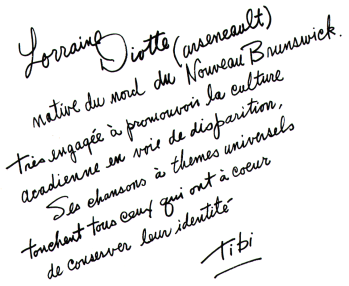 Lorraine Diotte (arseneault)
native du nord du Nouveau Brunswick.
très engagée à promouvois la culture
acadienne en voie de disparition,
Ses chansons à themes universels
touchent tous ceux qui ont à coeur
de conserver leur identité
Tibi